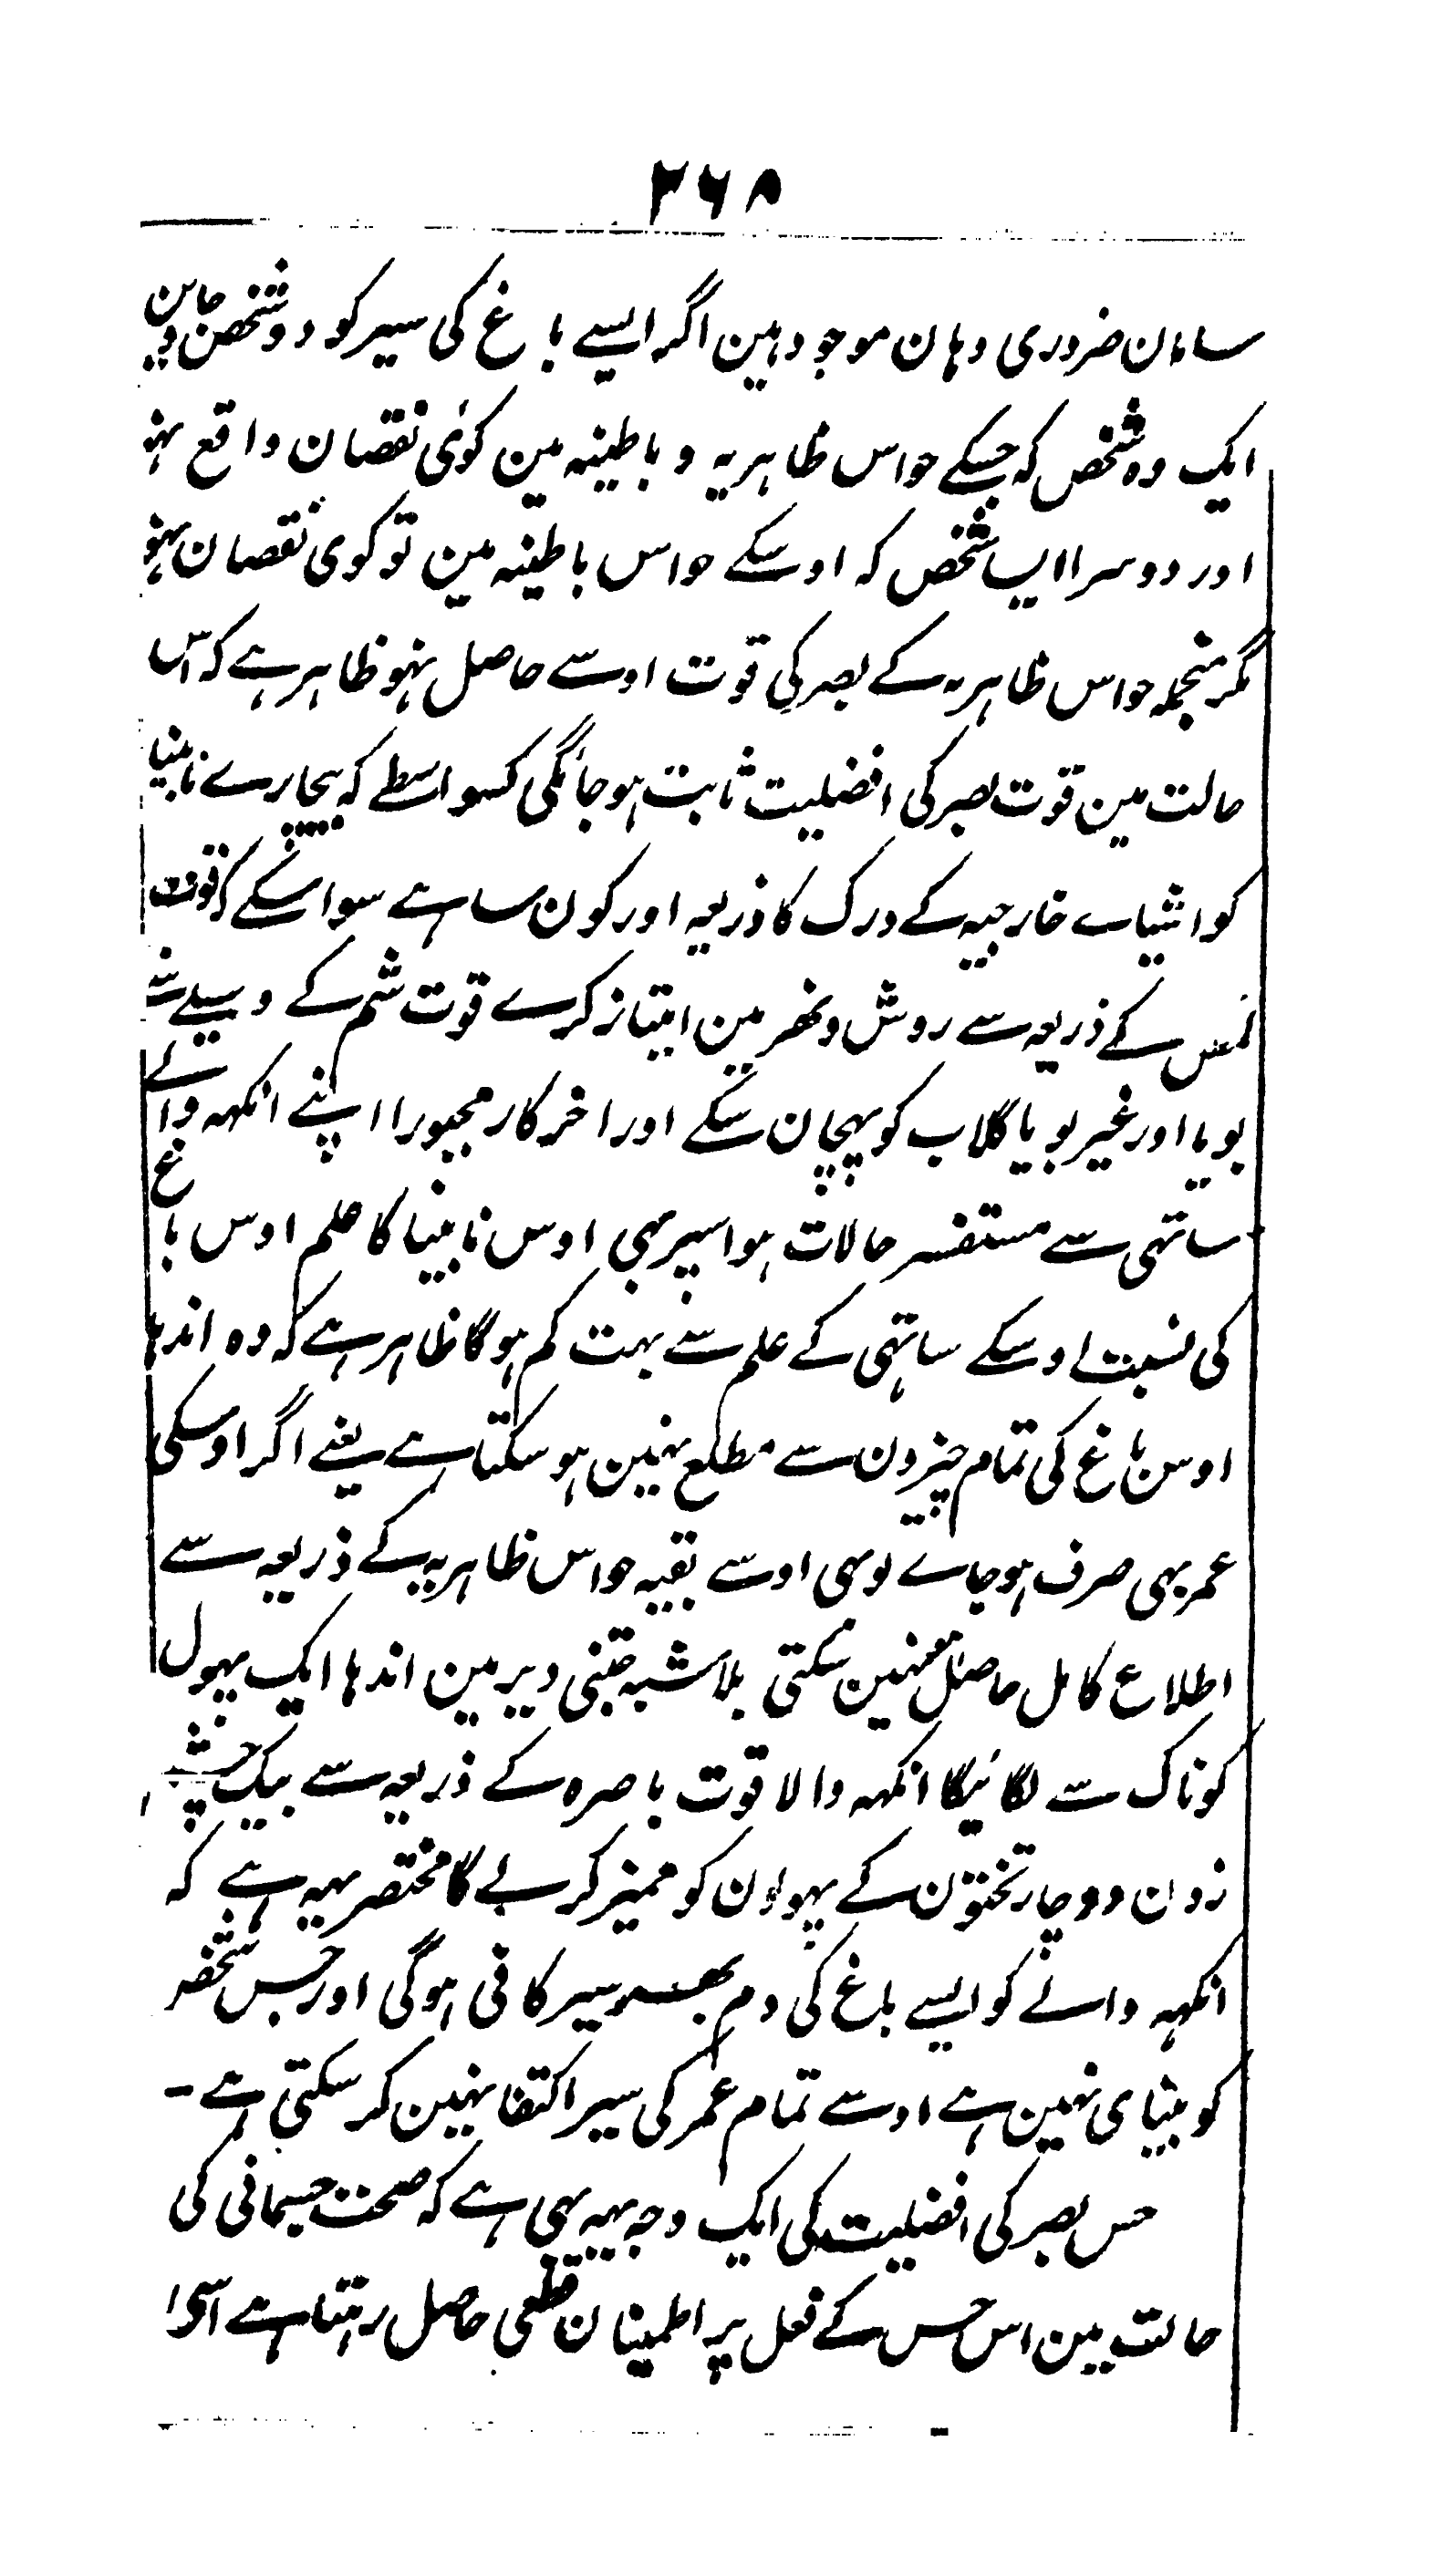 ۲۶۸
سامان ضروری وہان موجود ہین اگر ایسے باغ کی سیر کو دو شخص جاین
ایک وہ شخص کہ جسکے حواس ظاہریہ و باطینہ مین کوئی نقصان واقع نہو
اور دوسرا ایسا شخص کہ اوسکے حواس باطینہ مین تو کوی نقصان نہو
مگر منجملہ حواس ظاہریہ کے بصر کی قوت اوسے حاصل نہو ظاہر ہے کہ اس
حالت مین قوت بصر کی افضلیت ثابت ہوجائگی کسواسطے کہ بیچارے نابینا
کو اشیاے خارجیہ کے درک کا ذریعہ اور کون سا ہے سوا اسکے کہ قوت
لمس کے ذریعہ سے روش و نھر مین امتیاز کرے قوت شم کے وسیلے سے
بویا اور غیر بویا گلاب کو پہچان سکے اور اخر کار مجبورا اپنے انکہہ والے
ساتہی سے مستفسر حالات ہو اسپر بہی اوس نابینا کا علم اوس باغ
کی نسبت اوسکے ساتہی کے علم سے بہت کم ہوگا ظاہر ہے کہ وہ اندہا
اوس باغ کی تمام چیزون سے مطلع نہین ہوسکتا ہے یعنے اگر اوسکی
عمر بہی صرف ہوجاے توبہی اوسے بقیہ حواس ظاہریہ کے ذریعہ سے
اطلاع کامل حاصل نہین سکتی بلاشبہ جتنی دیر مین اندہا ایک پہول
کو ناک سے لگائیگا انکہہ والا قوت باصرہ کے ذریعہ سے بیک چشم
زدن دو چار تختون کے پہولون کو ممیز کرلے گا مختصر یہہ ہے کہ
انکہہ والے کو ایسے باغ کی دم بھر سیر کافی ہوگی اور جس شخص
کو بینای نہین ہے اوسے تمام عمر کی سیر اکتفا نہین کر سکتی ہے ۔
حس بصر کی افضلیت کی ایک وجہ یہہ بہی ہے کہ صحت جسمانی کی
حالت مین اس حس کے فعل پر اطمینان قطعی حاصل رہتا ہے